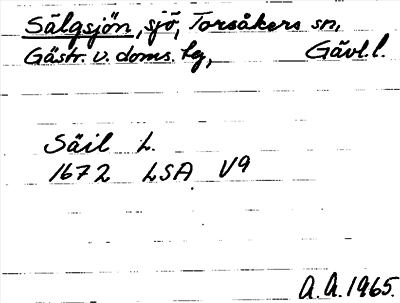 Sälgsjön, sjö, Torsåkers sn,
Gästr. v. doms. hg, Gävl.l.
Säil L.
1672 LSA V9
A.A. 1965.